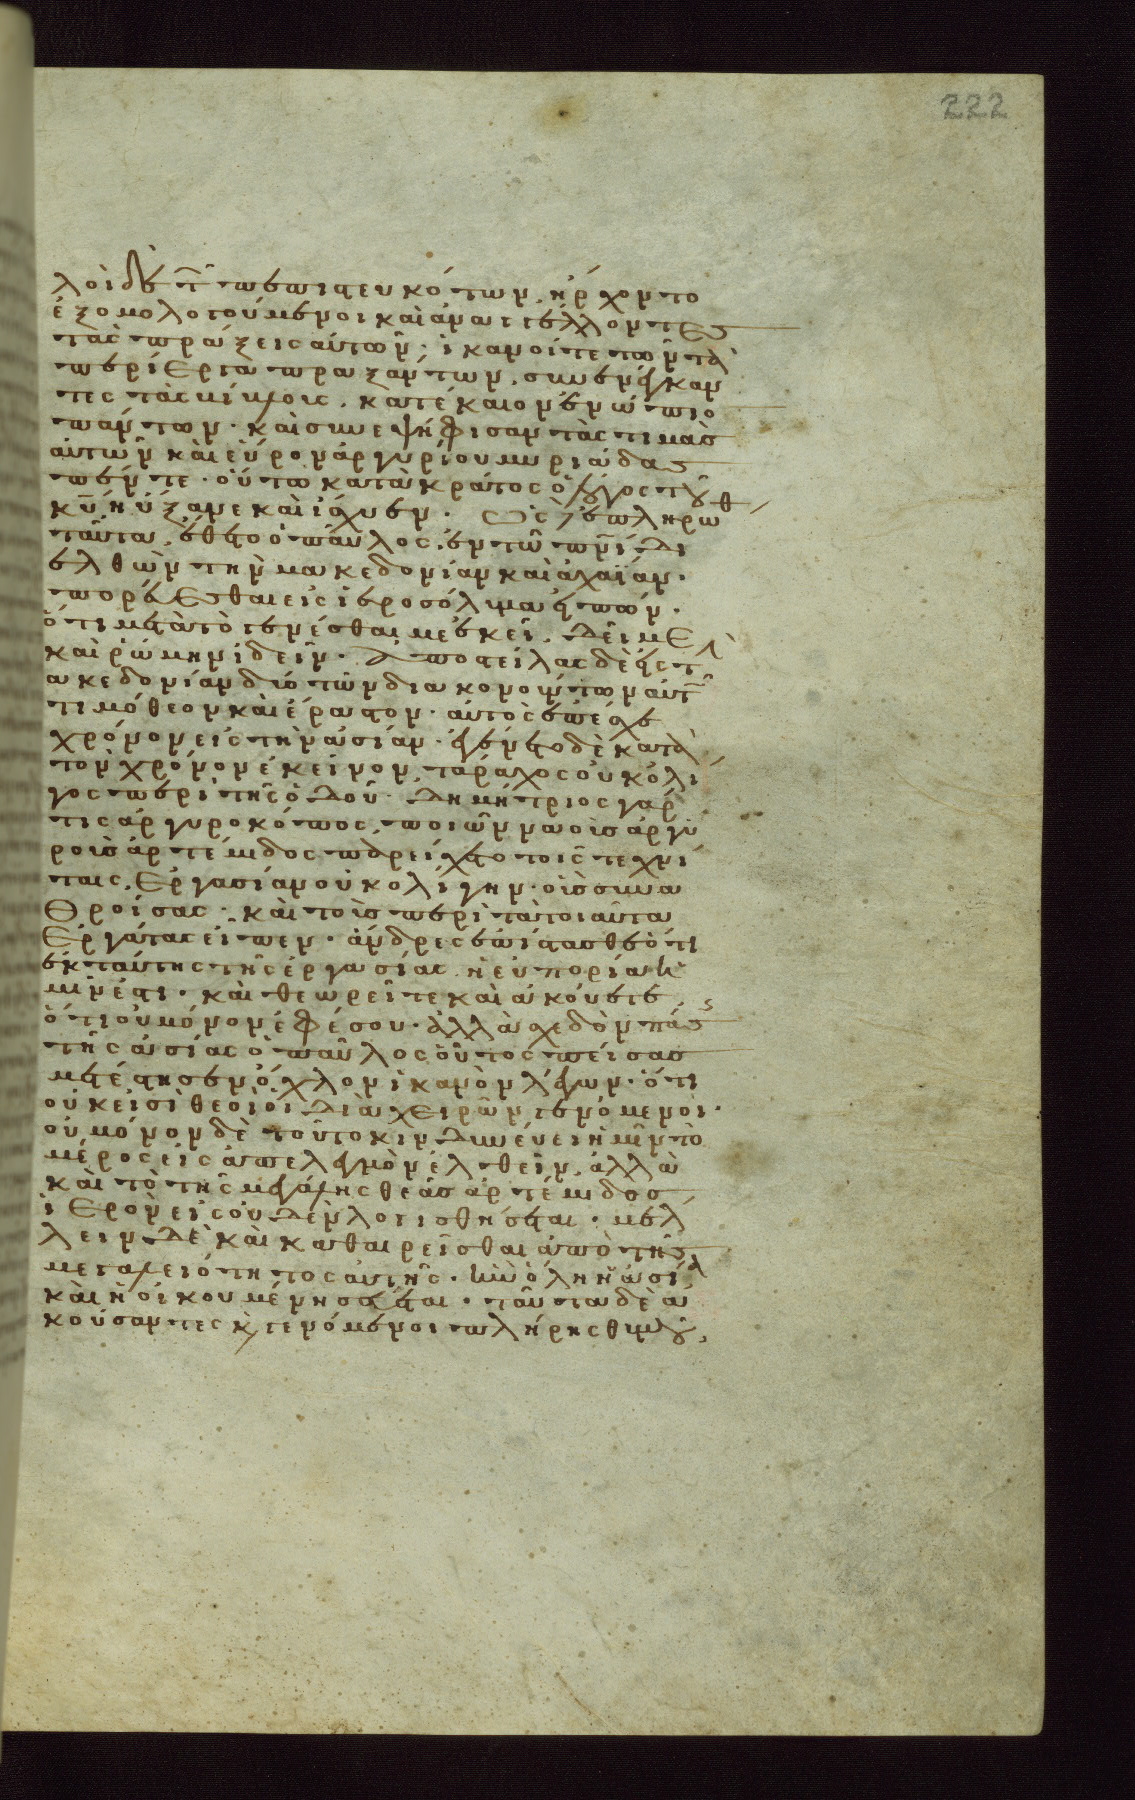 222
λοὶ δὲ τῶν πεπιστευκότων, ἤρχοντο
ἐξομολογούμενοι καὶ ἀναγγέλλοντες
τὰς πράξεις αὐτῶν· ἱκανοί τε τῶν τὰ
περίεργα πραξάντων, συνενέγκαν
τες τὰς βίβλους, κατέκαιον ἐνώπιο
πάντων· καὶ συνεψήφισαν τὰς τιμὰς
αὐτῶν καὶ εὗρον ἀργυρίου μυριάδας
πέντε· οὕτω κατὰ κράτος ὁ λόγος τοῦ
κυ ηὔξανε καὶ ἴσχυεν· Ὡς δὲ ἐπληρώθ
ταῦτα, ἔθετο ὁ παῦλος, ἐν τῶ πνι δι
ελθὼν τὴν μακεδονίαν καὶ ἀχαΐαν·
πορεύεσθαι εἰς ἱεροσόλυμα εἰπών·
ὅτι μετὰ τὸ γενέσθαι με ἐκεῖ, δεῖ με
καὶ ῥώμην ἰδεῖν· ἀποστείλας δὲ εἰς τ
μακεδονίαν δύο τῶν διακονούντων αὐτῶ
τιμόθεον καὶ ἔραστον· αὐτὸς ἐπέσχε
χρόνον εἰς τὴν ἀσίαν· ἐγένετο δὲ κατὰ
τὸν χρόνον ἐκεῖνον, τάραχος οὐκ ὀλί
γος περὶ τῆς ὁδοῦ· δημήτριος γάρ
τις ἀργυροκόπος, ποιῶν ναοὺς ἀργυ
ροῦς ἀρτέμιδος παρείχετο τοῖς τεχνί
ταις, ἐργασίαν οὐκ ὀλίγην· οὓς συνα
θροίσας· καὶ τοὺς περὶ τὰ τοιαῦτα
ἐργάτας εἶπεν· ἄνδρες ἐπίστασθε ὅτι
ἐκ ταύτης τῆς ἐργασίας ἡ εὐπορία ἡ
μῖν ἐστι· καὶ θεωρεῖτε καὶ ἀκούετε,
ὅτι οὐ μόνον ἐφέσου· ἀλλὰ σχεδὸν πάσς
τῆς ἀσίας ὁ παῦλος οὗτος πείσας
μετέστησεν ὄχλον ἱκανὸν λέγων· ὅτι
οὐκ εἰσὶ θεοὶ οἱ διὰ χειρῶν γενόμενοι·
οὐ μόνον δὲ τοῦτο κινδυνεύει ἡμῖν τὸ
μέρος εἰς ἀπελεγμὸν ἐλθεῖν, ἀλλὰ
καὶ τὸ τῆς μεγάλης θεᾶς ἀρτέμιδος
ἱερὸν εἰς οὐδὲν λογισθήσεται· μέλ
λειν δὲ καὶ καθαιρεῖσθαι ἀπὸ τῆς
μεγαλειότητος αὐτῆς· ἣν ὅλη ἡ ἀσία
καὶ ἡ οἰκουμένη σέβεται· ταῦτα δὲ ἀ
κούσαντες κ γενόμενοι πλήρης θυμοῦ,